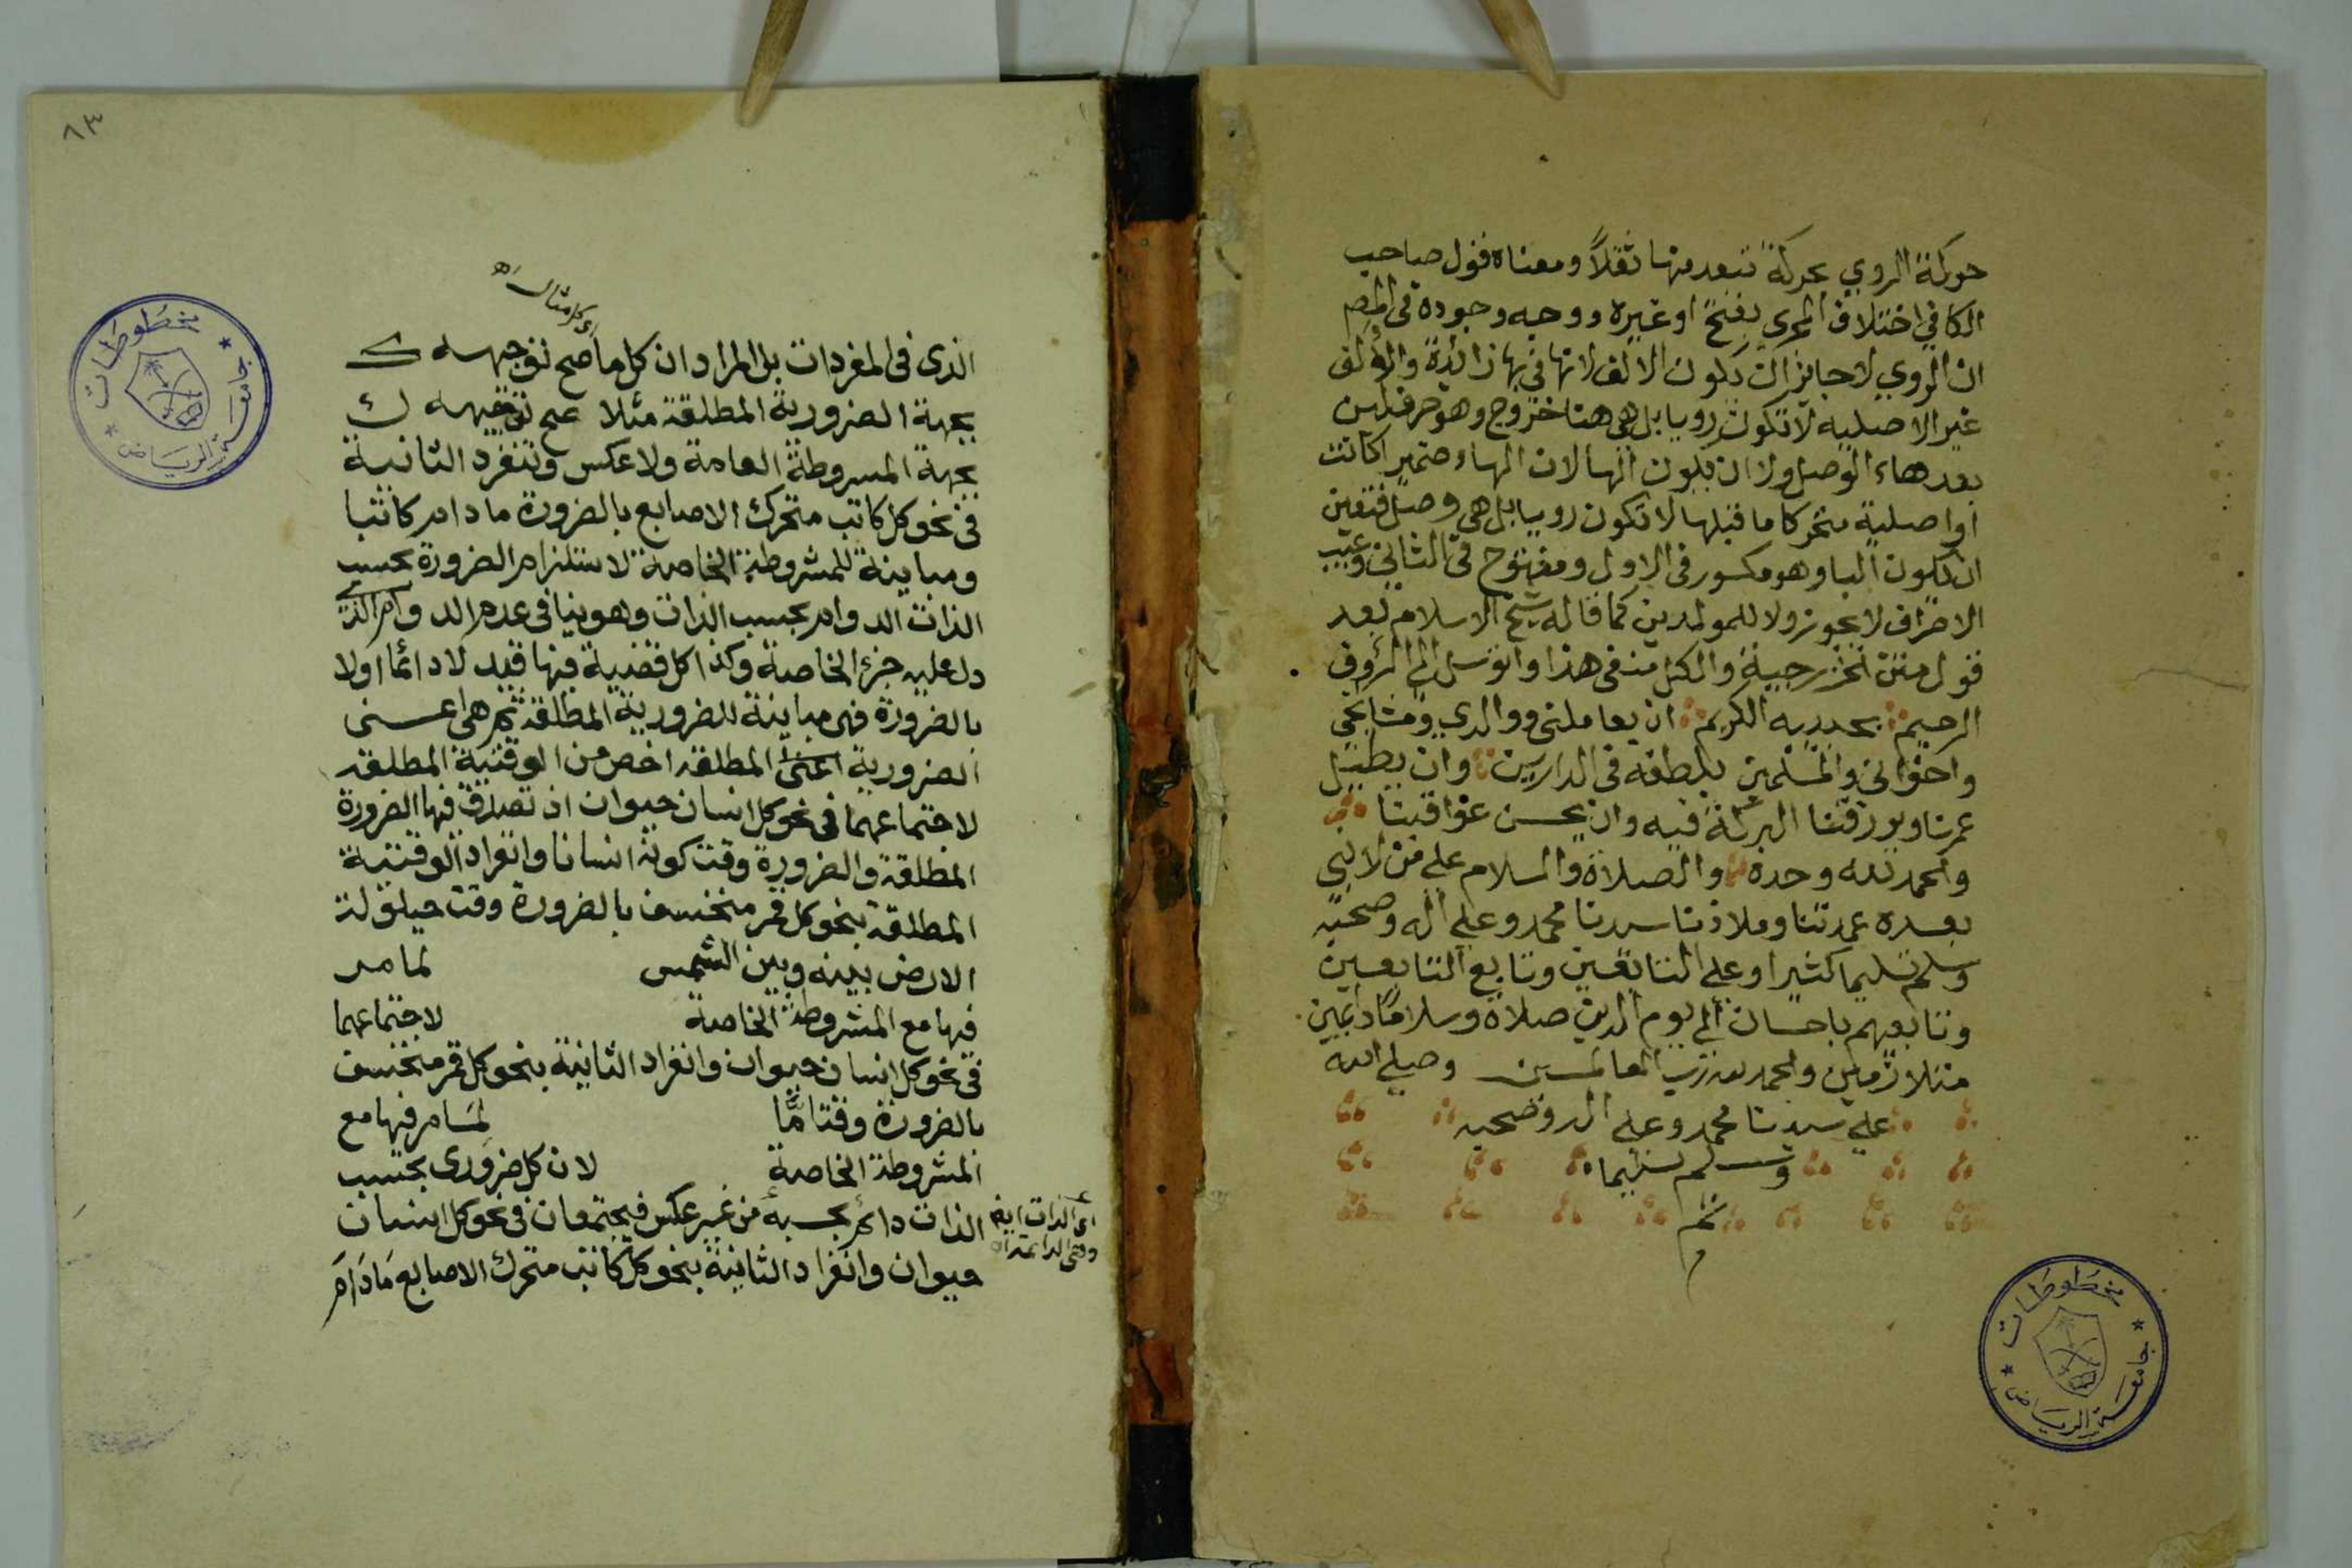 حركة الروي بحركة تبعد منها ثقلاً ومعناه قول صاحب
الكافي اختلاف المجرى بفتح او غيره ووجه وجوده في
ان الروي لا جايز ان تكون الالف لانها في بها زائدة والالف
غير الاصلية لا تكون رويا بل هي هنا خروج وهو حرف لين
بعد هاء الوصل ولا ان يكون الها لان الهاء ضميرا كانت
او اصلية متحركا ما قبلها لا تكون رويا بل هي وصل فتعين
ان تكون البا وهو مكسور في الاول ومفتوح في الثاني وعيب
الاصراف لا يجوز ولا للمولدين كما قاله شيخ الاسلام بعد
قول متن الخزرجية والكل منفى هذا واتوسل الى الرؤف
الرحيم بحبيبه الكريم ان يعاملني ووالدي ومشايخي
واخواني والمسلمين بلطفه في الدارين وان يطيل
عمرنا ويرزقنا البركة فيه وان يحسن عواقبنا
والحمد لله وحده والصلاة والسلام على من لا نبي
بعده عمدتنا وملاذنا سيدنا محمد وعلى اله وصحبه
وسلم تسليما كثيرا وعلى التابعين وتابع التابعين
وتابعهم باحسان الى يوم الدين صلاة وسلاما دائمين
متلازمين والحمد لله رب العالمين وصلى الله
على سيدنا محمد وعلى اله وصحبه
وسلم تسليما
تم
م
جامعة الرياض
مخطوطات
٨٣
اي كل مثال اه
الذى فى المفردات بل المراد ان كل ما صح توجيهه
بجهة الضرورية المطلقة مثلا صح توجيهه
بجهة المشروطة العامة ولا عكس وتنفرد الثانية
في نحو كل كاتب متحرك الاصابع بالضرورة ما دام كاتبا
ومباينة للمشروطة الخاصة لاستلزام الضرورة بحسب
الذات الدوام بحسب الذات وهو ينافى عدم الدوام الذى
دل عليه جزء الخاصة وكذا كل قضية فيها قيد لا دائما اولا
بالضرورة فهى مباينة للضرورية المطلقة ثم هى اعنى
الضرورية اعنى المطلقة اخص من الوقتية المطلقة
لاجتماعهما فى نحو كل انسان حيوان اذ تصدق فيها الضرورة
المطلقة والضرورة وقت كونه انسانا وانفراد الوقتية
المطلقة بنحو كل قمر منخسف بالضرورة وقت حيلولة
الارض بينه وبين الشمس لما مر
فيها مع المشروطة الخاصة لاجتماعهما
فى نحو كل انسان حيوان وانفراد الثانية بنحو كل قمر منخسف
بالضرورة وقتا مّا لما مر فيها مع
المشروطة الخاصة لان كل ضرورى بحسب
الذات دائم بحسبه من غير عكس فيجتمعان فى نحو كل انسان
حيوان وانفراد الثانية بنحو كل كاتب متحرك الاصابع ما دام
جامعة الرياض
مخطوطات